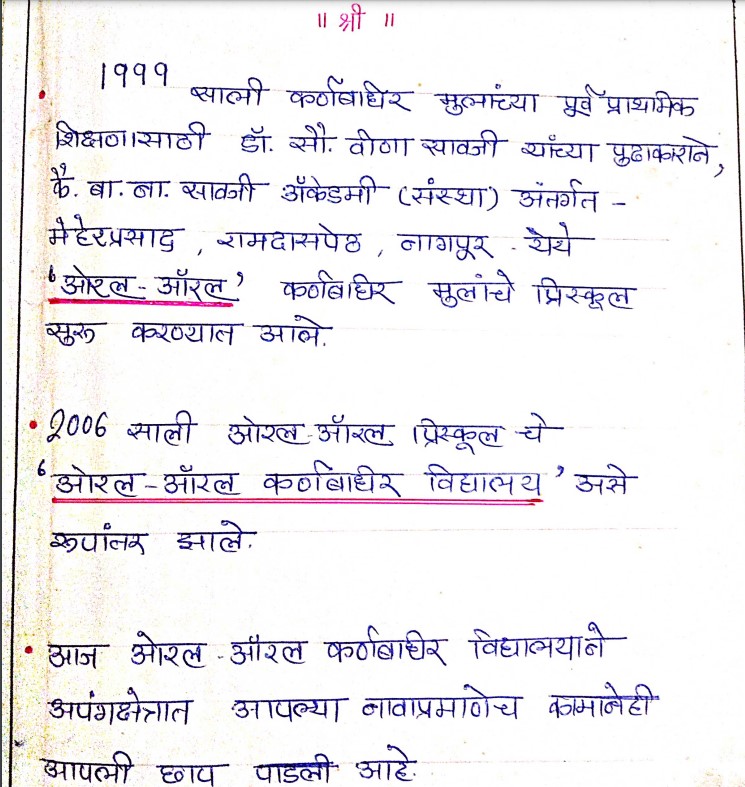 ॥ श्री ॥
• 1999 साली कर्णबधिर मुलांच्या पूर्व प्राथमिक
शिक्षणासाठी डॉ. सौ. वीणा सावजी यांच्या पुढाकाराने,
कै. बा. ना. सावजी अ‍ॅकेडमी (संस्था) अंतर्गत -
मेहेरप्रसाद, रामदासपेठ, नागपूर येथे
‘ओरल - ऑरल’ कर्णबधिर मुलांचे प्रिस्कूल
सुरु करण्यात आले.
• 2006 साली ओरल-ऑरल प्रिस्कूल चे
‘ओरल - ऑरल कर्णबधिर विद्यालय’ असे
रुपांतर झाले.
• आज ओरल - ऑरल कर्णबधिर विद्यालयाने
अपंगक्षेत्रात आपल्या नावाप्रमाणेच कामानेही
आपली छाप पाडली आहे.